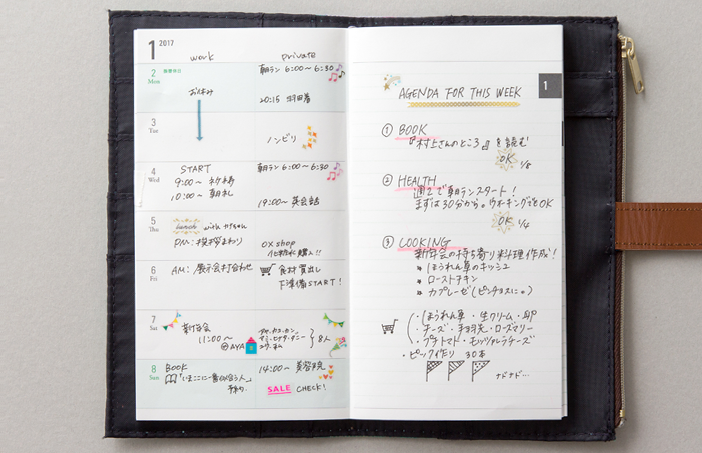 1 2017
work private
2 Mon 振替休日
朝ラン 6:00〜6:30
お休み
20:15 羽田着
3 Tue
ノンビリ
4 Wed
START
朝ラン 6:00〜6:30
9:00〜
10:00〜 朝礼
19:00〜 英会話
5 Thu
Lunch with
PM:挨拶まわり
OX shop
化粧水購入!!
6 Fri
AM:展示会打合わせ
食材買出し
下準備START!
7 Sat
新年会
11:00〜
@AYA
8人
8 Sun
BOOK
14:00〜 美容院
予約
SALE CHECK!
1
AGENDA FOR THIS WEEK
① BOOK
『村上さんのところ』を読む
OK 1/8
② HEALTH
週2で朝ランスタート!
まずは30分から。ウォーキングでもOK
OK 1/4
③ COOKING
新年会の持ち寄り料理作成!
* ほうれん草のキッシュ
* ローストチキン
* カプレーゼ(ピンチョスに。)
・ほうれん草・生クリーム・卵
・チーズ・手羽先・ローズマリー
・プチトマト・モッツァレラチーズ
・ピック作り 30本
ナドナド…